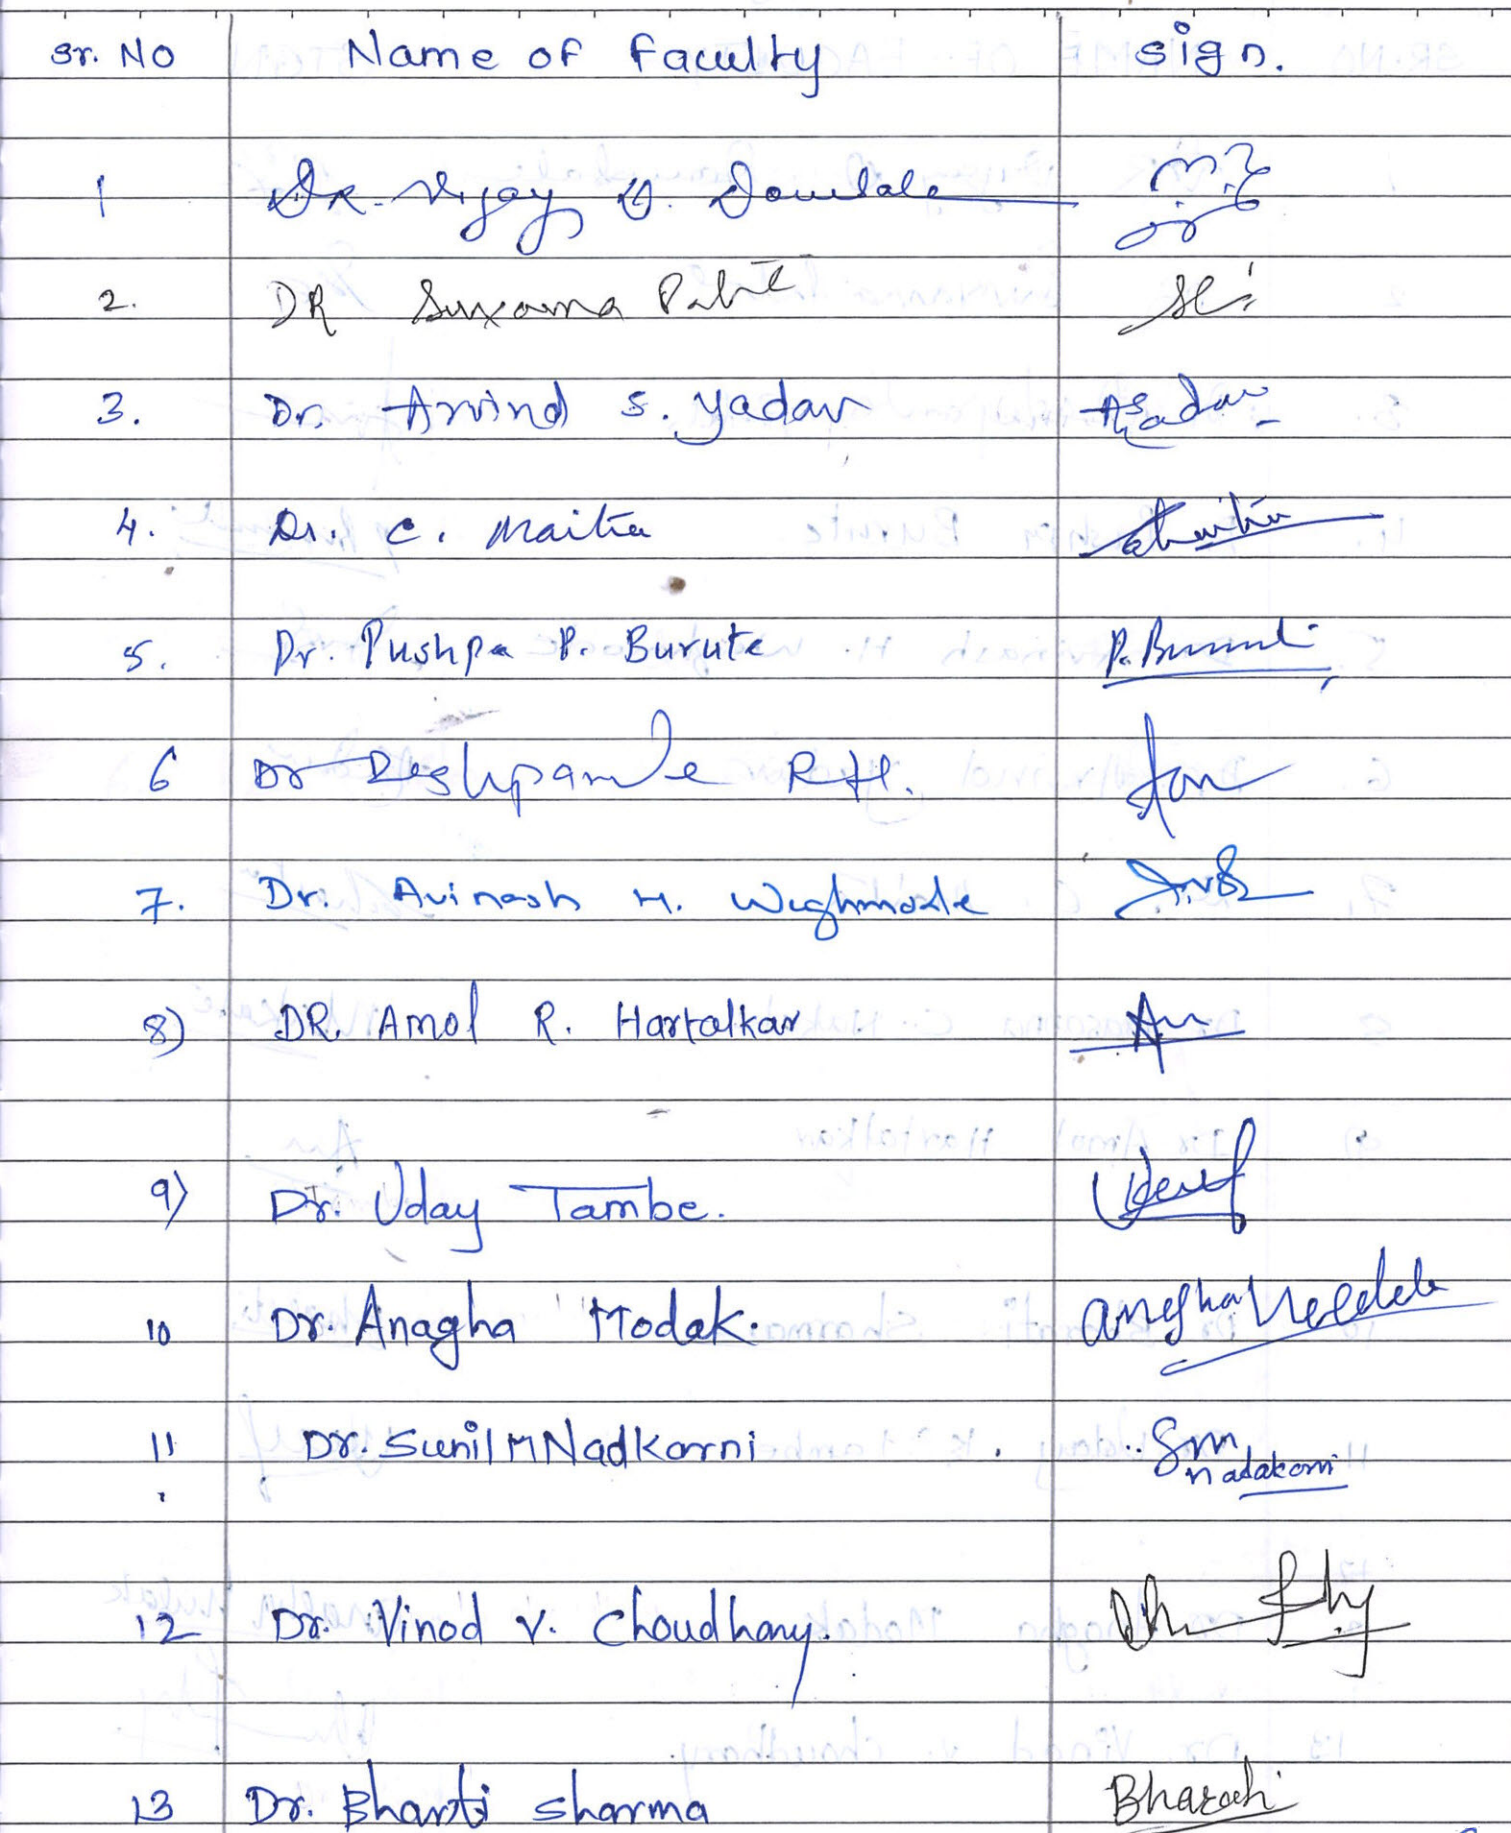 Sr. No Name of Faculty Sign.
1 DR. Vijay D.
2. DR Patil
3. Dr. Arvind S. Yadav ASYadav
4. Dr. C. Maitra CMaitra
5. Dr. Pushpa P. Burute P. Burute
6 Dr Deshpande R H.
7. Dr. Avinash H. Waghmode
8) DR. Amol R. Hartalkar
9) Dr. Uday Tambe.
10 Dr. Anagha Modak. Anagha Modak
11 Dr. Sunil M Nadkarni Smnadakarni
12 Dr. Vinod V. Choudhary.
13 Dr. Bharti Sharma Bharati